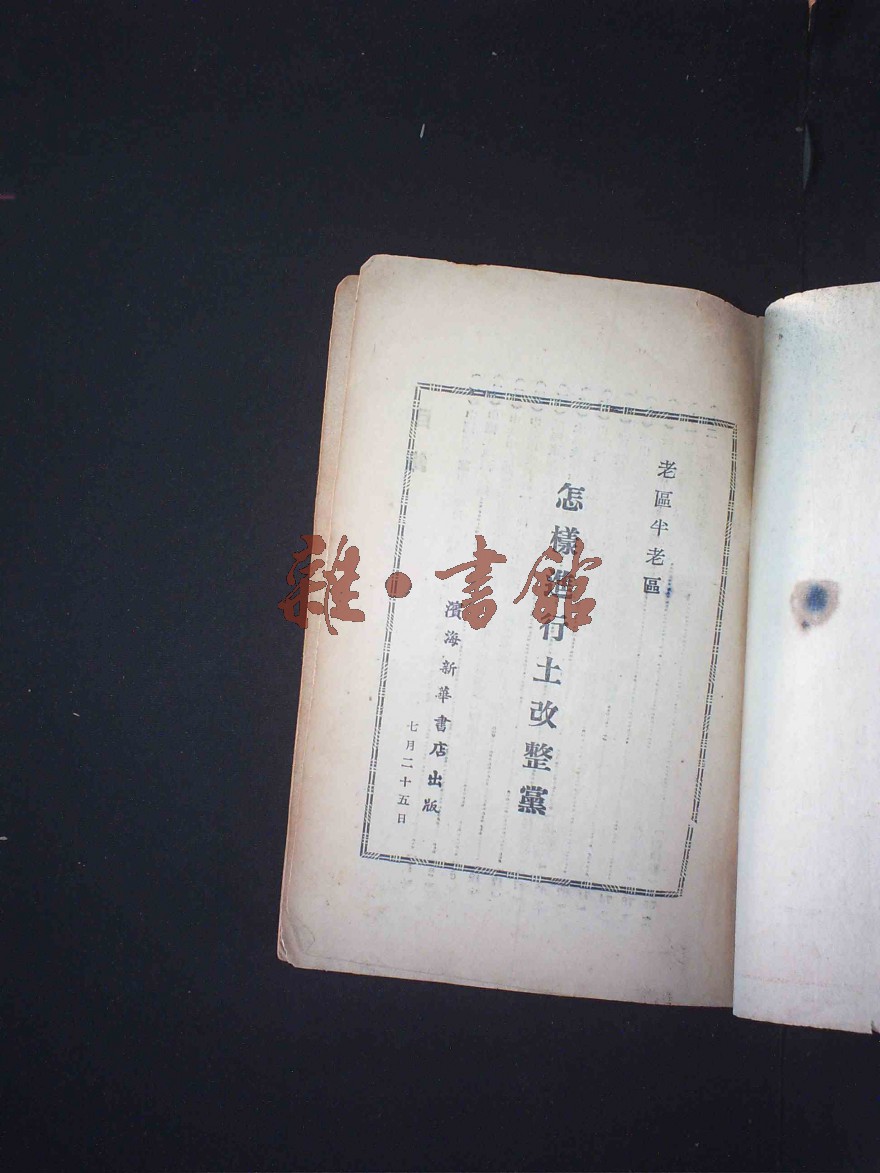 老區半老區
怎樣進行土改整黨
濱海新華書店出版
七月二十五日
雜·書館